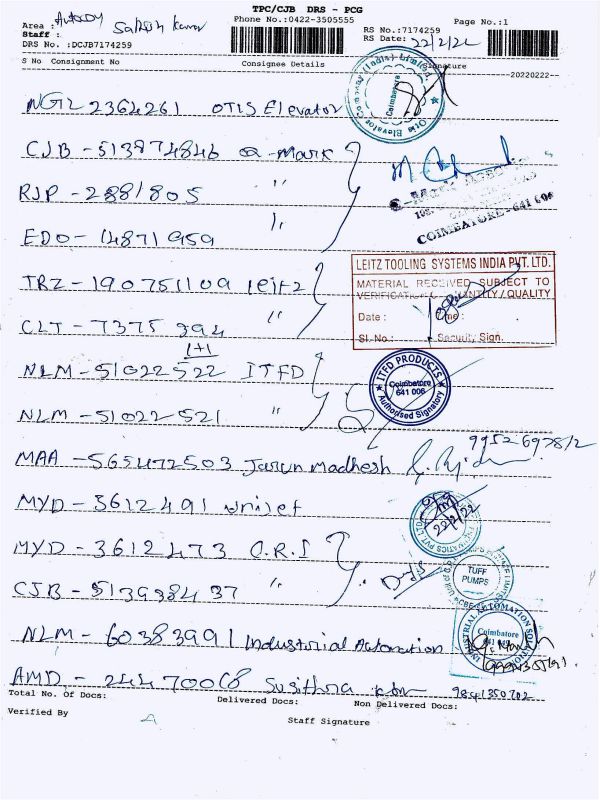 TPC/CJB DRS - PCG
Phone No.:0422-3505555
Page No.:1
Area :
Staff :
DRS No. :DCJB7174259
RS No.:7174259
RS Date: 22/2/22
S No Consignment No Consignee Details Signature
20220222
Otis Elevator Company (India) Limited.
Coimbatore
NGL 2364261 OTIS Elevator
CJB - 513974846 Q-Mark
RJP - 2881805 "
EDO - 14871959 "
COIMBATORE-641 006
LEITZ TOOLING SYSTEMS INDIA PVT. LTD.
MATERIAL RECEIVED SUBJECT TO
VERIFICATION QUANTITY / QUALITY
Date : Time :
Sl. No.: Security Sign.
TRZ - 190751109 leitz
CLT - 7375 394 "
1+1
NLM - 51022522 ITFD
ITFD PRODUCTS
Coimbatore
641 006
Authorised Signatory
NLM - 51022521 "
MAA - 565472503 Jarun Madhesh
MYD - 3612491 Unijet
22/2/22
MYD - 3612473 C.R.I
TUFF
PUMPS
CJB - 513938437 "
NLM - 60383991 Industrial Automation
INDUSTRIAL AUTOMATION
Coimbatore
AMD - 24470068 Susithra 9841350702
Total No. of Docs: Delivered Docs: Non Delivered Docs:
Verified By Staff Signature